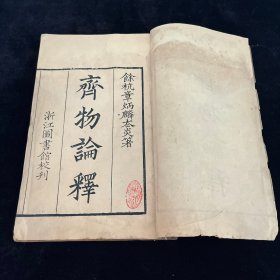 餘杭章炳麟太炎著
齊物論釋
浙江圖書館校刊